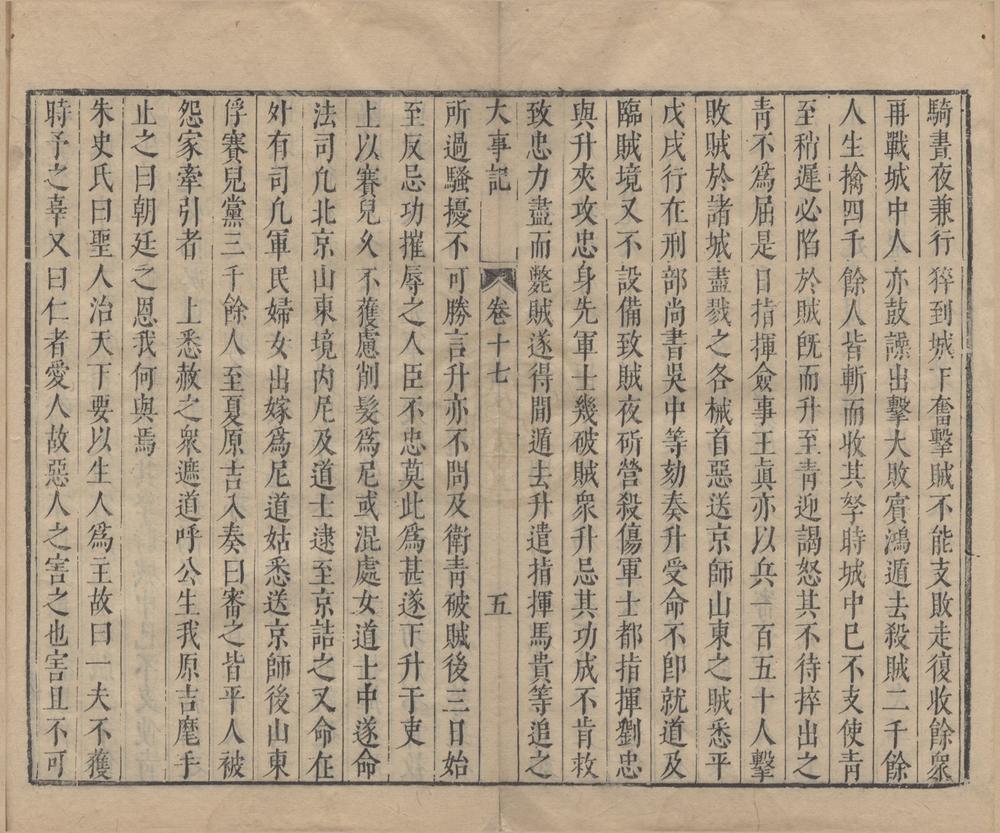 騎晝夜兼行猝到城下奮擊賊不能支敗走復收餘衆
再戰城中人亦鼓譟出擊大敗賓鴻遁去殺賊二千餘
人生擒四千餘人皆斬而收其孥時城中已不支使靑
至稍遲必陷於賊旣而升至靑迎謁怒其不待捽出之
靑不爲屈是日指揮僉事王眞亦以兵一百五十人擊
敗賊於諸城盡戮之各械首惡送京師山東之賊悉平
戊戌行在刑部尚書吳中等劾奏升受命不卽就道及
臨賊境又不設備致賊夜斫營殺傷軍士都指揮劉忠
與升夾攻忠身先軍士幾破賊衆升忌其功成不肯救
致忠力盡而斃賊遂得間遁去升遣指揮馬貴等追之
大事記 卷十七 五
所過騷擾不可勝言升亦不問及衛靑破賊後三日始
至反忌功摧辱之人臣不忠莫此爲甚遂下升于吏
上以賽兒久不獲慮削髮爲尼或混處女道士中遂命
法司凢北京山東境內尼及道士逮至京詰之又命在
外有司凢軍民婦女出嫁爲尼道姑悉送京師後山東
俘賽兒黨三千餘人至夏原吉入奏曰審之皆平人被
怨家牽引者 上悉赦之衆遮道呼公生我原吉麾手
止之曰朝廷之恩我何與焉
朱史氏曰聖人治天下要以生人爲王故曰一夫不獲
時予之辜又曰仁者愛人故惡人之害之也害且不可